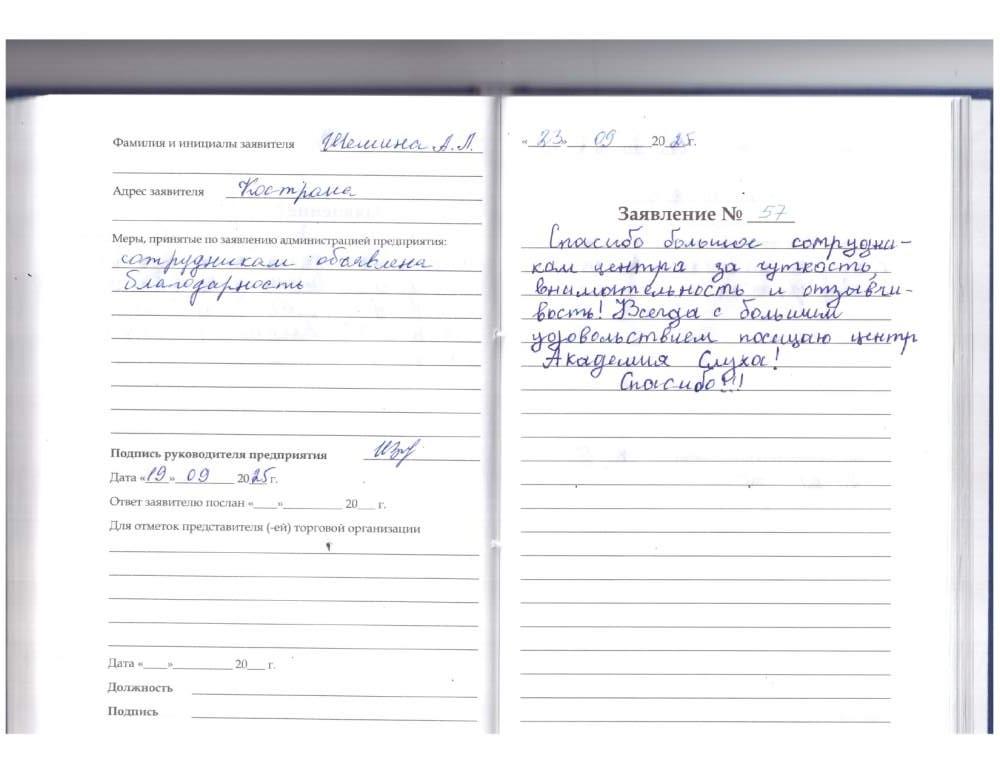 Фамилия и инициалы заявителя Шемина А.Л.
Адрес заявителя Кострома
Меры, принятые по заявлению администрацией предприятия:
сотрудникам объявлена
благодарность
Подпись руководителя предприятия
Дата «19» 09 2025 г.
Ответ заявителю послан «____»__________ 20___ г.
Для отметок представителя (-ей) торговой организации
Дата «____»__________ 20___ г.
Должность
Подпись
«23» 09 2025г.
Заявление № 57
Спасибо большое сотрудни-
кам центра за чуткость,
внимательность и отзывчи-
вость! Всегда с большим
удовольствием посещаю центр
Академия Слуха!
Спасибо!!!